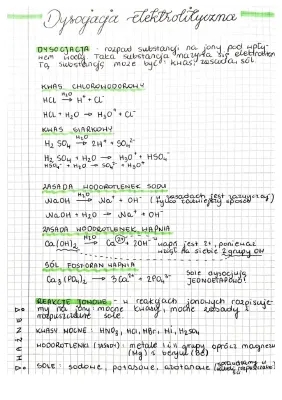 Dysocjacja elektrolityczna
DYSOCJACJA - rozpad substancji na jony pod wpły-
wem wody. Taka substancja nazywa się elektrolitem
Tą substancją może być: kwas, zasada, sól.
KWAS CHLOROWODOROWY
HCl →H₂O H⁺ + Cl⁻
HCl + H₂O → H₃O⁺ + Cl⁻
KWAS SIARKOWY
H₂SO₄ →H₂O 2H⁺ + SO₄²⁻
H₂SO₄ + H₂O → H₃O⁺ + HSO₄⁻
HSO₄⁻ + H₂O → SO₄²⁻ + H₃O⁺
ZASADA WODOROTLENEK SODU
NaOH →H₂O Na⁺ + OH⁻ (w zasadach jest zazwyczaj tylko
NaOH + H₂O → Na⁺ + OH⁻
ZASADA WODOROTLENEK WAPNIA
Ca(OH)₂ →H₂O Ca²⁺ + 2OH⁻ wapń jest 2+, ponieważ
wiąże się z 2 grupy OH
SÓL FOSFORAN WAPNIA
Ca₃(PO₄)₂ → 3Ca²⁺ + 2PO₄³⁻ Sole dysocjują
JEDNOETAPOWO!
REAKCJE JONOWE - w reakcjach jonowych rozpisuje-
my na jony: mocne kwasy, mocne zasady i
rozpuszczalne sole.
KWASY MOCNE: HNO₃, HCl, HBr, HI, H₂SO₄
WODOROTLENKI (ZASADY): metale 1 i 2 grupy oprócz magnezu
(Mg) i berylu (Be)
SOLE: sodowe, potasowe, azotanowe